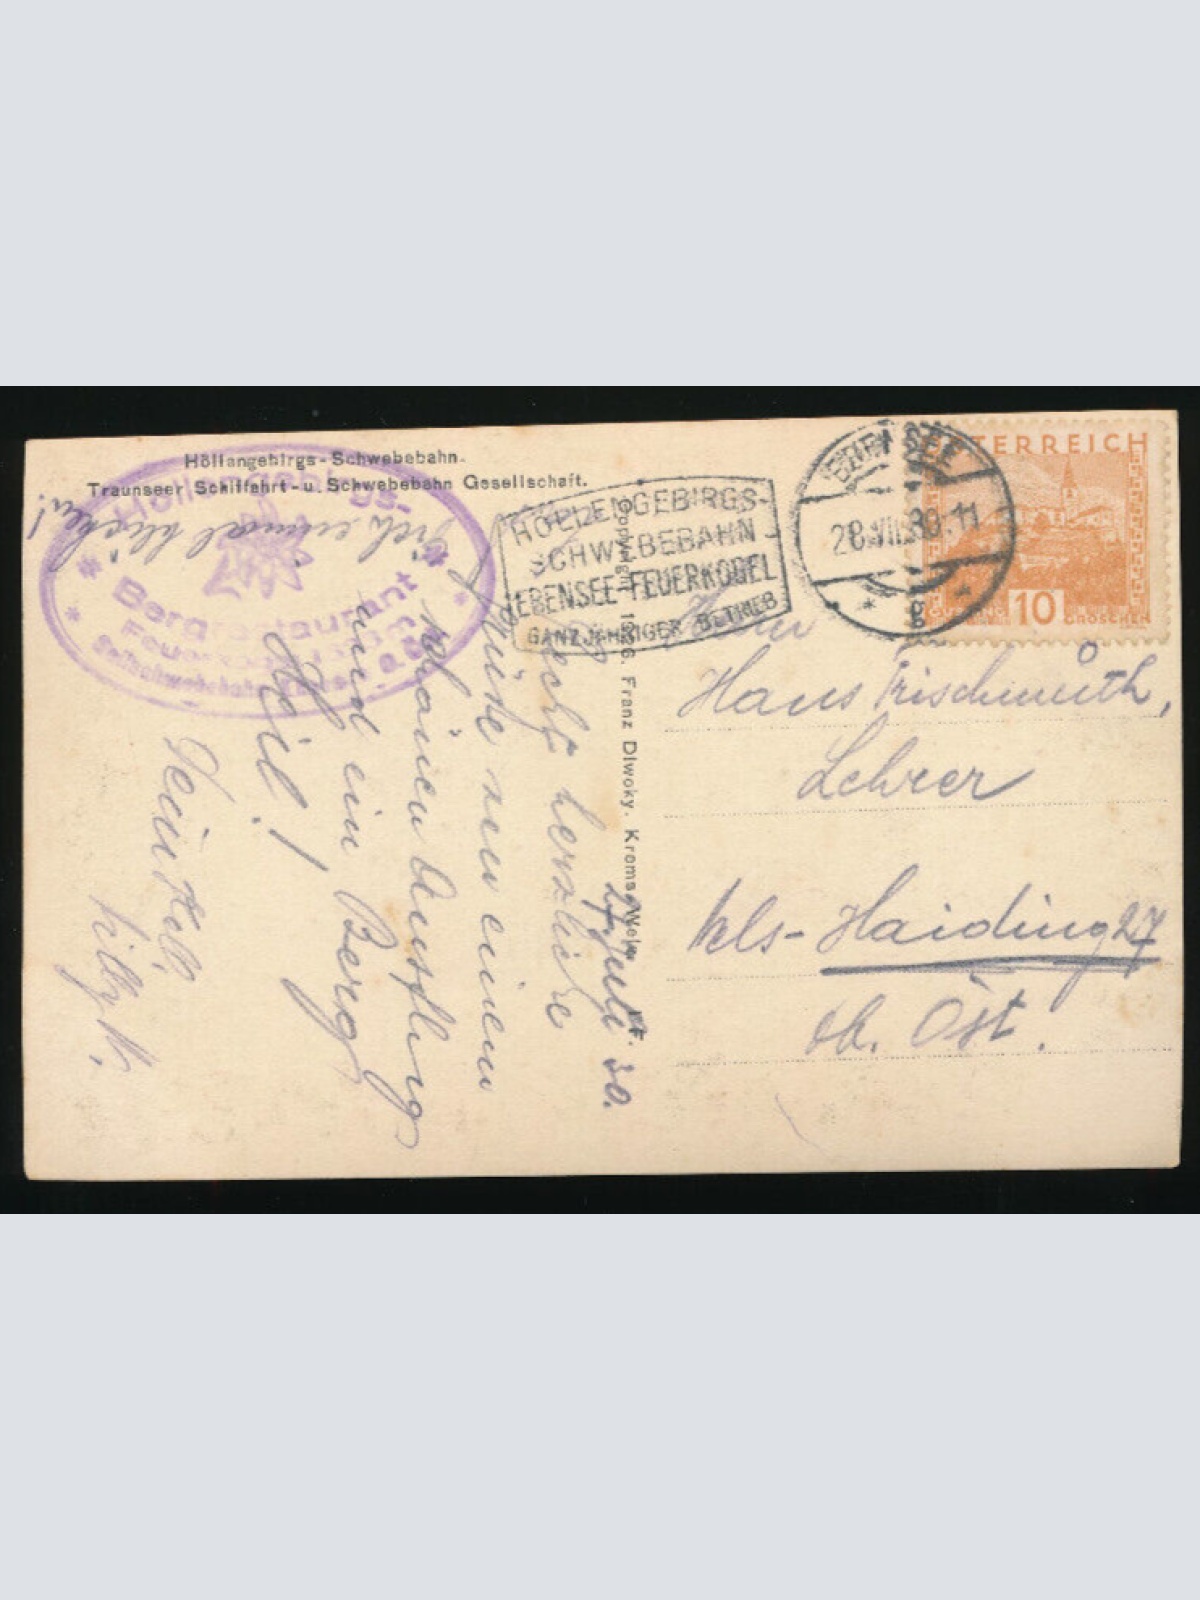 Höllengebirgs-Schwebebahn.
Traunseer Schiffahrt- u. Schwebebahn Gesellschaft.
Höllengebirgs-
Bergrestaurant
HÖLLENGEBIRGS-
SCHWEBEBAHN
EBENSEE-FEUERKOGEL
GANZJÄHRIGER BETRIEB
EBENSEE
28.VII.30.11
* g *
ÖSTERREICH
10
GROSCHEN
Copyright 1926. Franz Dlwoky.
27. Juli 30.
Recht herzliche
Grüße von einem
schönen Ausflug
und ein Berg
Heil!
Dein
einmal
Herrn
Hans Frischmuth,
Lehrer
Wels-Haiding 27
ob. Öst.